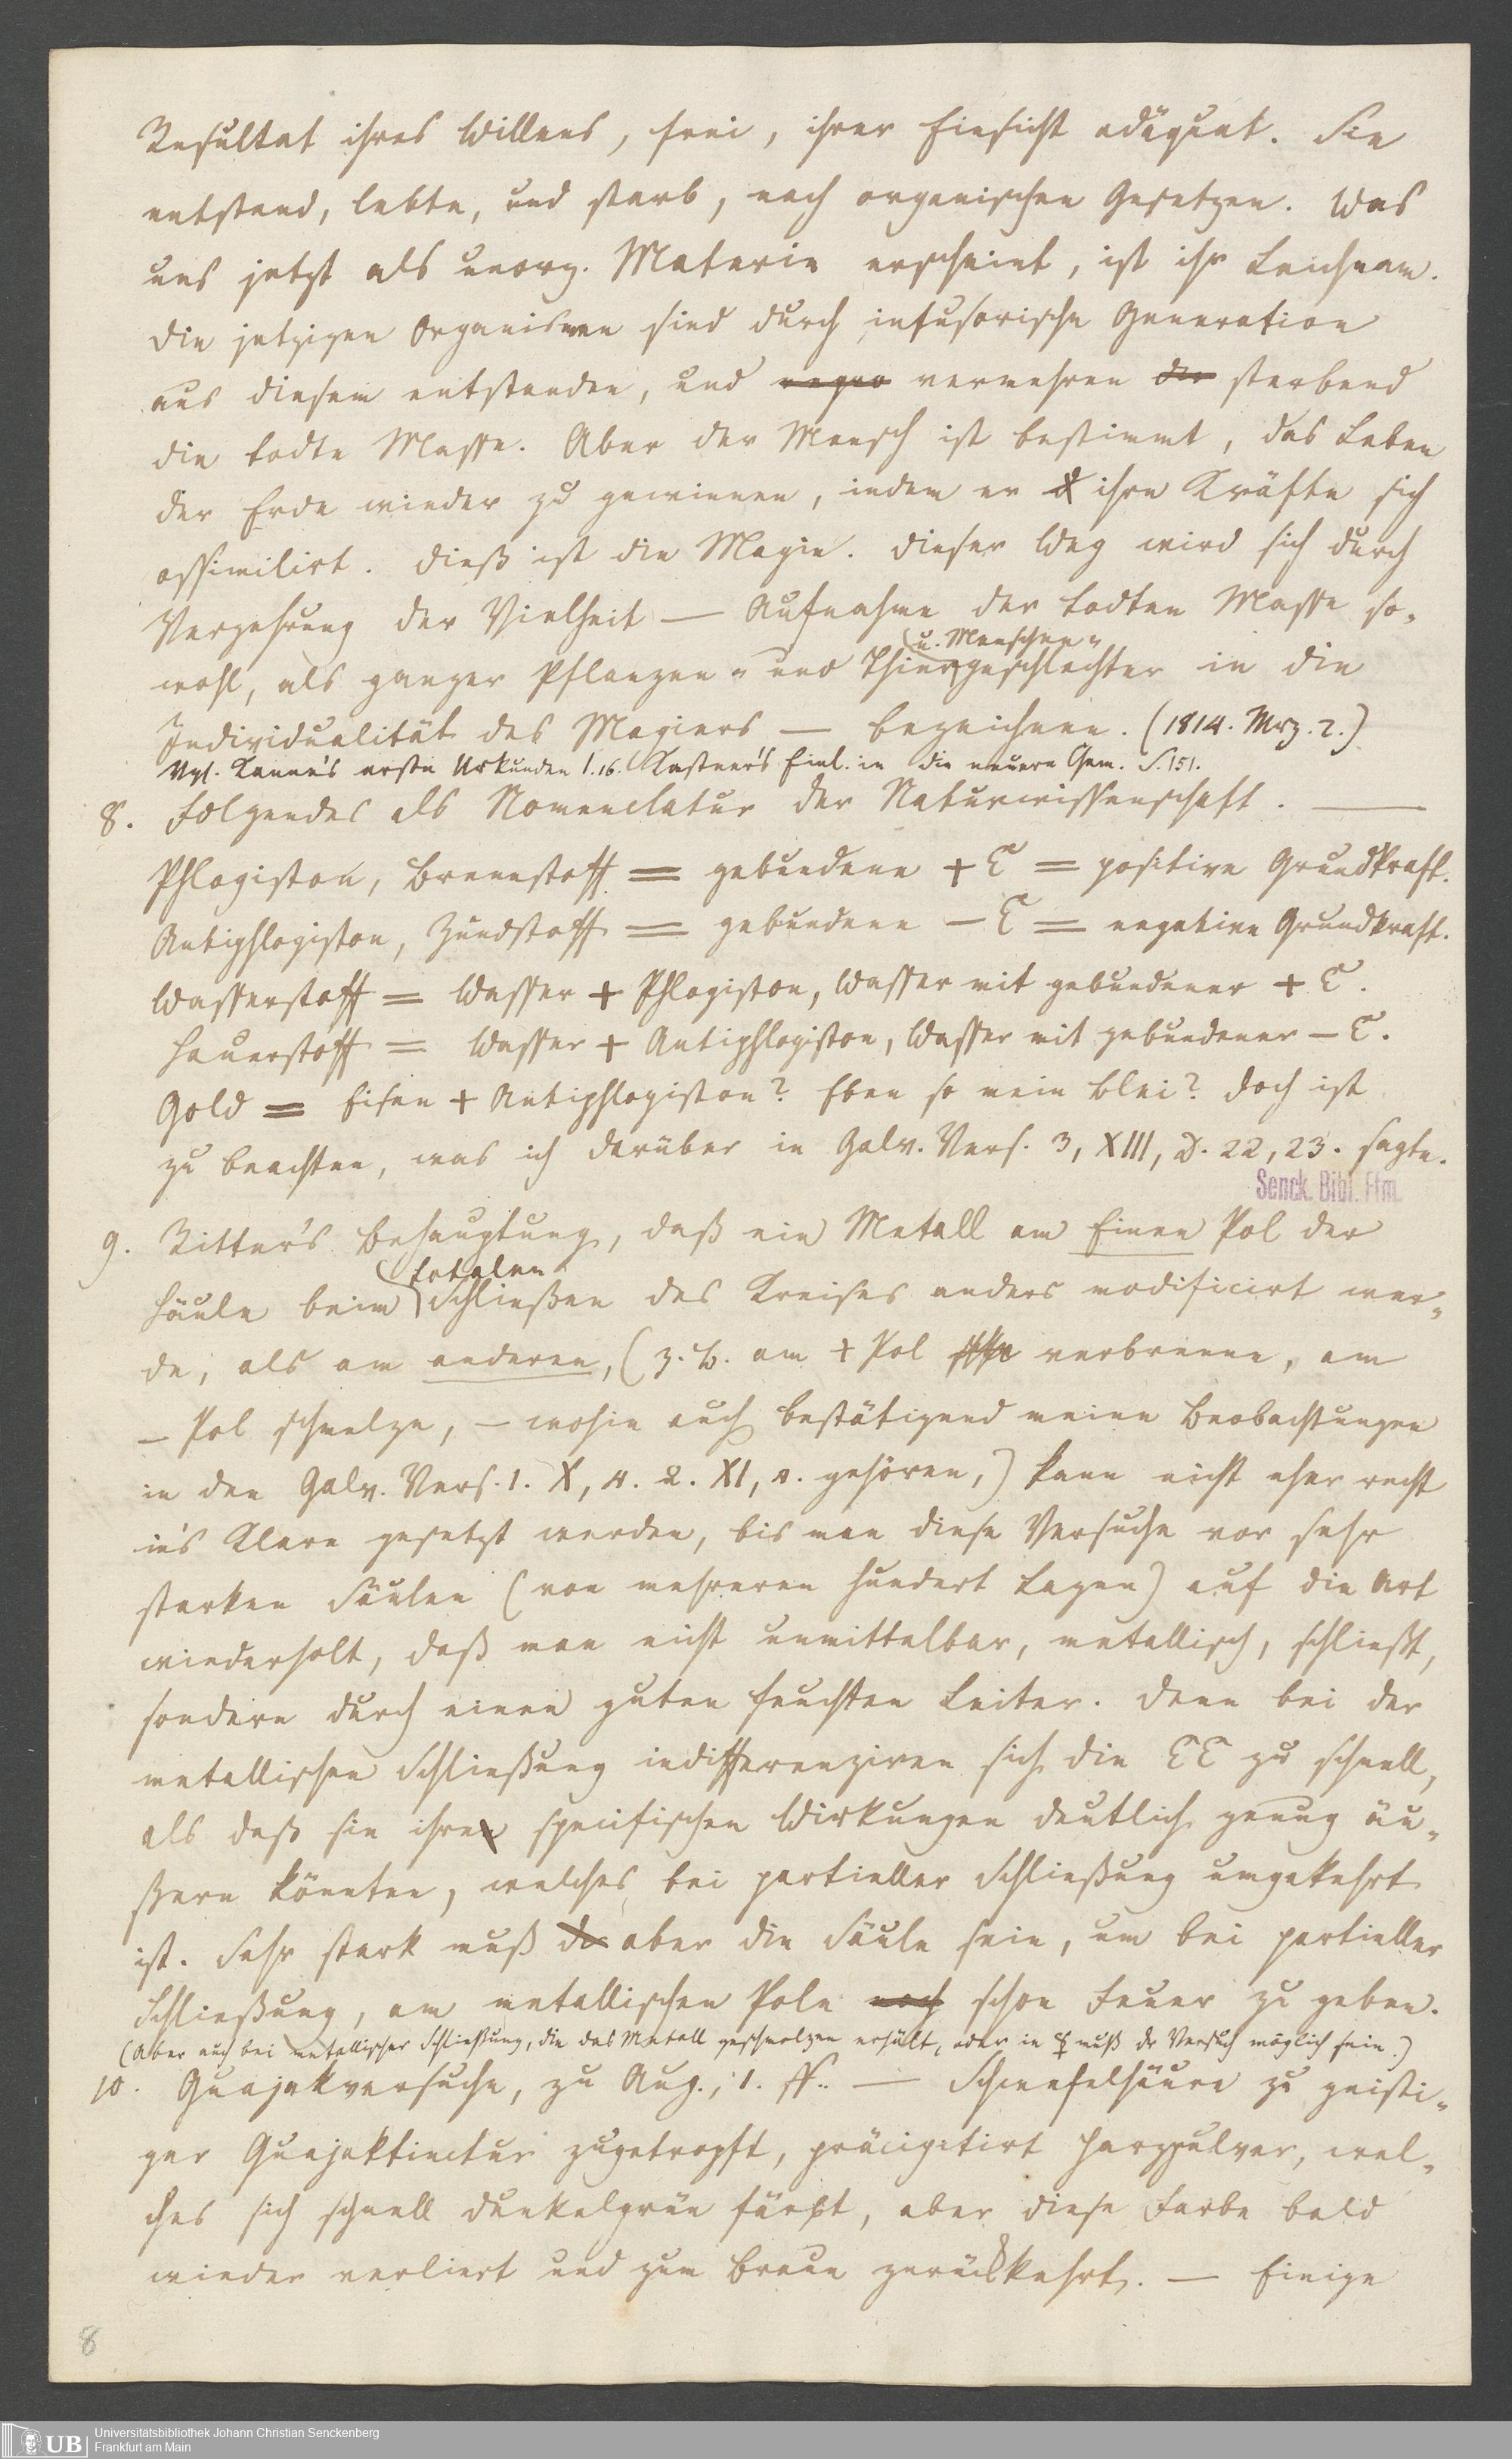 Resultat ihres Willens, frei, ihrer Einsicht adäquat. Sie
entstand, lebte, und starb, nach organischen Gesetzen. Was
uns jetzt als unorg. Materie erscheint, ist ihr Leichnam.
Die jetzigen Organismen sind durch infusorische Generation
aus diesem entstanden, und vermehren sterbend
die todte Masse. Aber der Mensch ist bestimmt, das Leben
der Erde wieder zu gewinnen, indem er ihre Kräfte sich
assimilirt. Dieß ist die Magie. Dieser Weg wird sich durch
Verzehrung der Vielheit — Aufnahme der todten Masse so-
u. Menschen-
wohl, als ganzer Pflanzen- und Thiergeschlechter in die
Individualität des Magiers — bezeichnen. (1814. Mrz. 2.)
Vgl. Kanne's erste Urkunden 1.16. Kastner's Einl. in die neuere Chem. S.151.
8. Folgendes als Nomenclatur der Naturwissenschaft. —
Phlogiston, Brennstoff = gebundene + E = positive Grundkraft.
Antiphlogiston, Zündstoff = gebundene — E = negative Grundkraft.
Wasserstoff = Wasser + Phlogiston, Wasser mit gebundener + E.
Sauerstoff = Wasser + Antiphlogiston, Wasser mit gebundener — E.
Gold = Eisen + Antiphlogiston? Eben so mein Blei? Doch ist
zu beachten, was ich darüber in Galv. Vers. 3, XIII, D. 22, 23. sagte.
Senck. Bibl. Ffm.
9. Ritter's Behauptung, daß ein Metall am Einen Pol der
totalen
Säule beim Schließen des Kreises anders modificirt wer-
de, als am anderen, (z. B. am + Pol verbrenne, am
— Pol schmelze, — wohin auch bestätigend meine Beobachtungen
in den Galv. Vers. 1. X, 4. 2. XI, gehören,) kann nicht eher recht
in's Klare gesetzt werden, bis man diese Versuche vor sehr
starken Säulen (von mehreren hundert Lagen) auf die Art
wiederholt, daß man nicht unmittelbar, metallisch, schließt,
sondern durch einen guten feuchten Leiter. Denn bei der
metallischen Schließung indifferenziren sich die EE zu schnell,
als daß sie ihre specifischen Wirkungen deutlich genug äu-
ßern könnten, welches bei partieller Schließung umgekehrt
ist. Sehr stark muß aber die Säule sein, um bei partieller
Schließung, am metallischen Pole schon Feuer zu geben.
(Aber auch bei metallischer Schließung, die das Metall geschmolzen erhält, oder in ☿ muß der Versuch möglich sein.)
10. Guajakversuche, zu Aug., 1. ff. — Schwefelsäure zu geisti-
ger Guajaktinctur zugetropft, präcipitirt Harzpulver, wel-
ches sich schnell dunkelgrün färbt, aber diese Farbe bald
wieder verliert und zum Braun zurückkehrt. — Einige
8
UB
Universitätsbibliothek Johann Christian Senckenberg
Frankfurt am Main